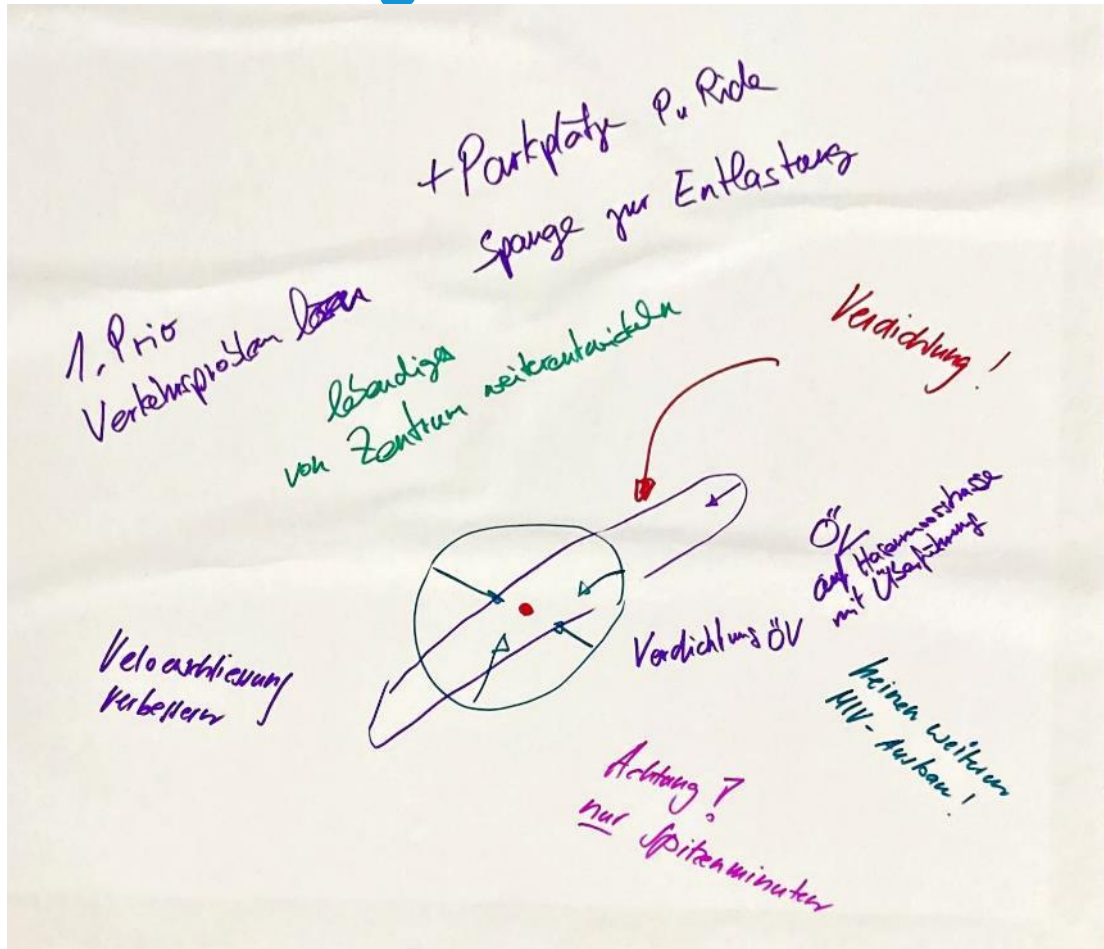 + Parkplätze P. u. Ride
Spange zur Entlastung
1. Prio
Verkehrsproblem lösen
lebendiges
von Zentrum weiterentwickeln
Verdichtung!
ÖV
auf Hasenmoosstrasse
mit Überführung
Verdichtung ÖV
Veloerschliessung
verbessern
keinen weiteren
MIV-Ausbau!
Achtung!
nur Spitzenminuten